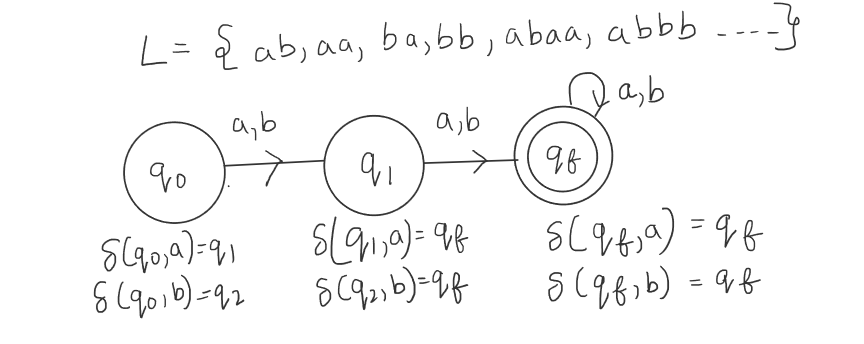 L = { ab, aa, ba, bb, abaa, abbb ----}
a,b a,b a,b
q0 q1 qf
δ(q0,a)=q1 δ(q1,a)=qf δ(qf,a) = qf
δ(q0,b)=q2 δ(q2,b)=qf δ(qf,b) = qf